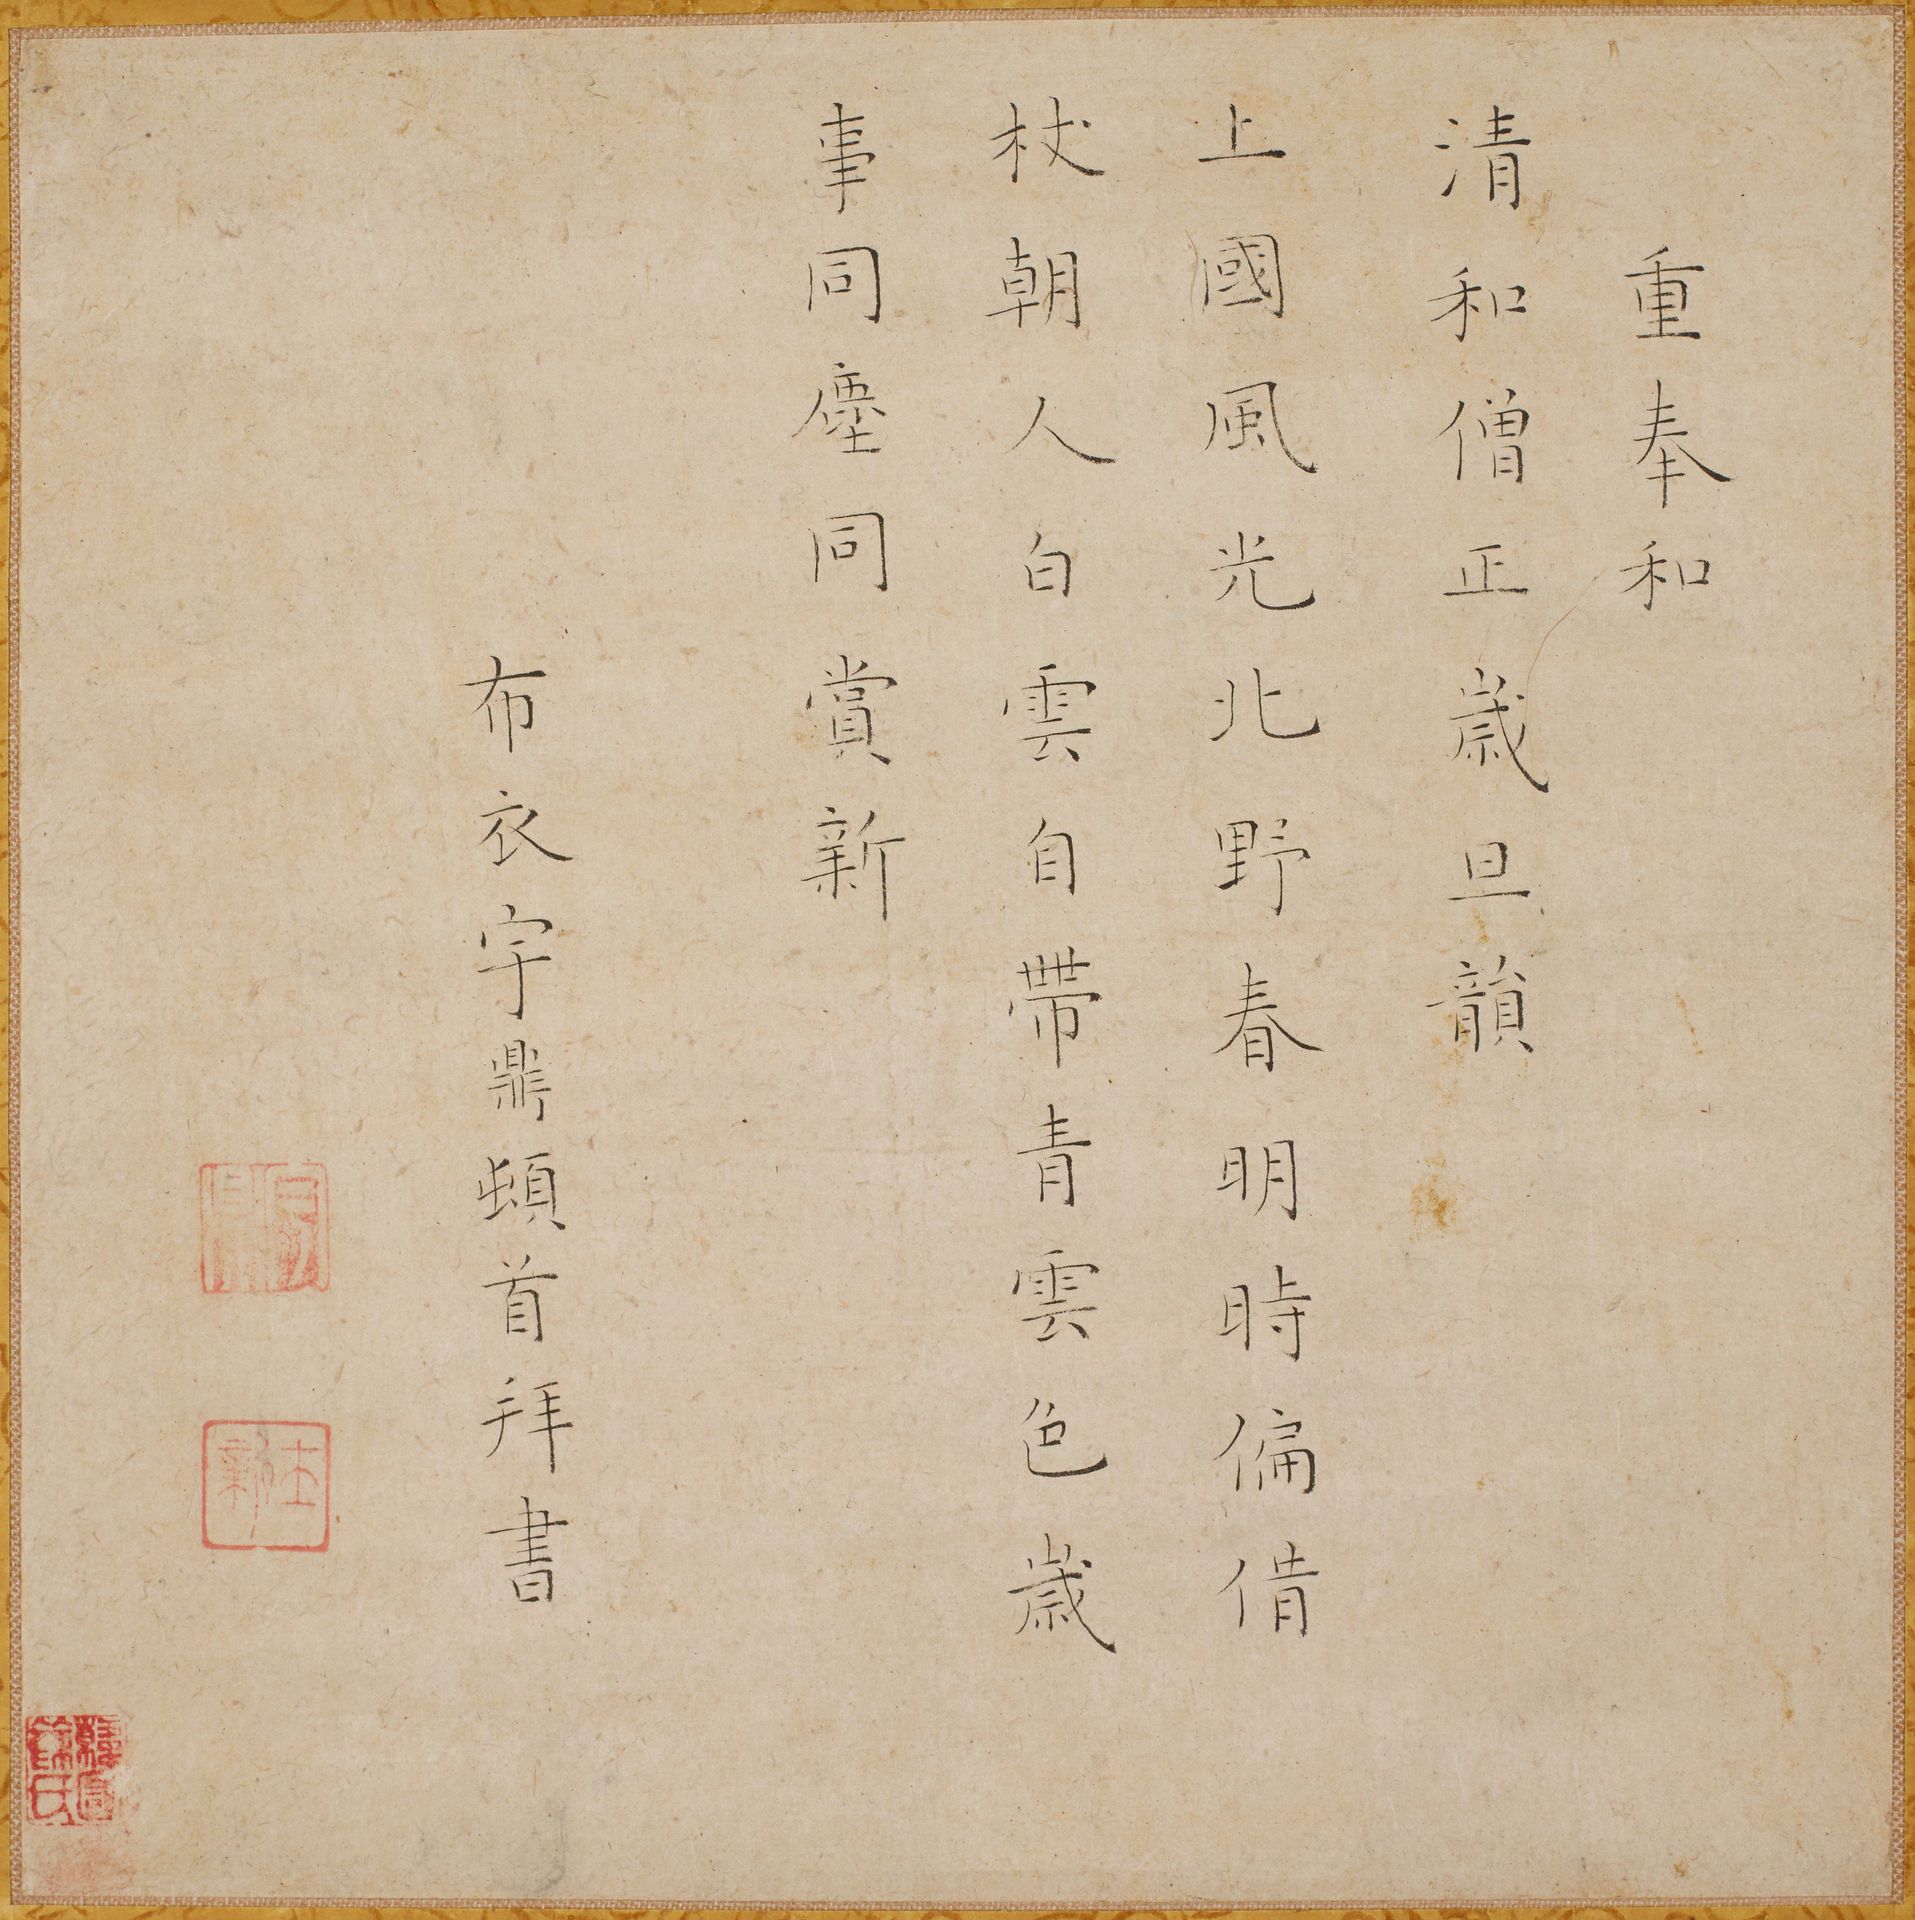 重奉和
清和僧正歲旦韻
上國風光北野春明時偏借
杖朝人白雲自帶青雲色歲
事同塵同賞新
布衣宇鼎頓首拜書